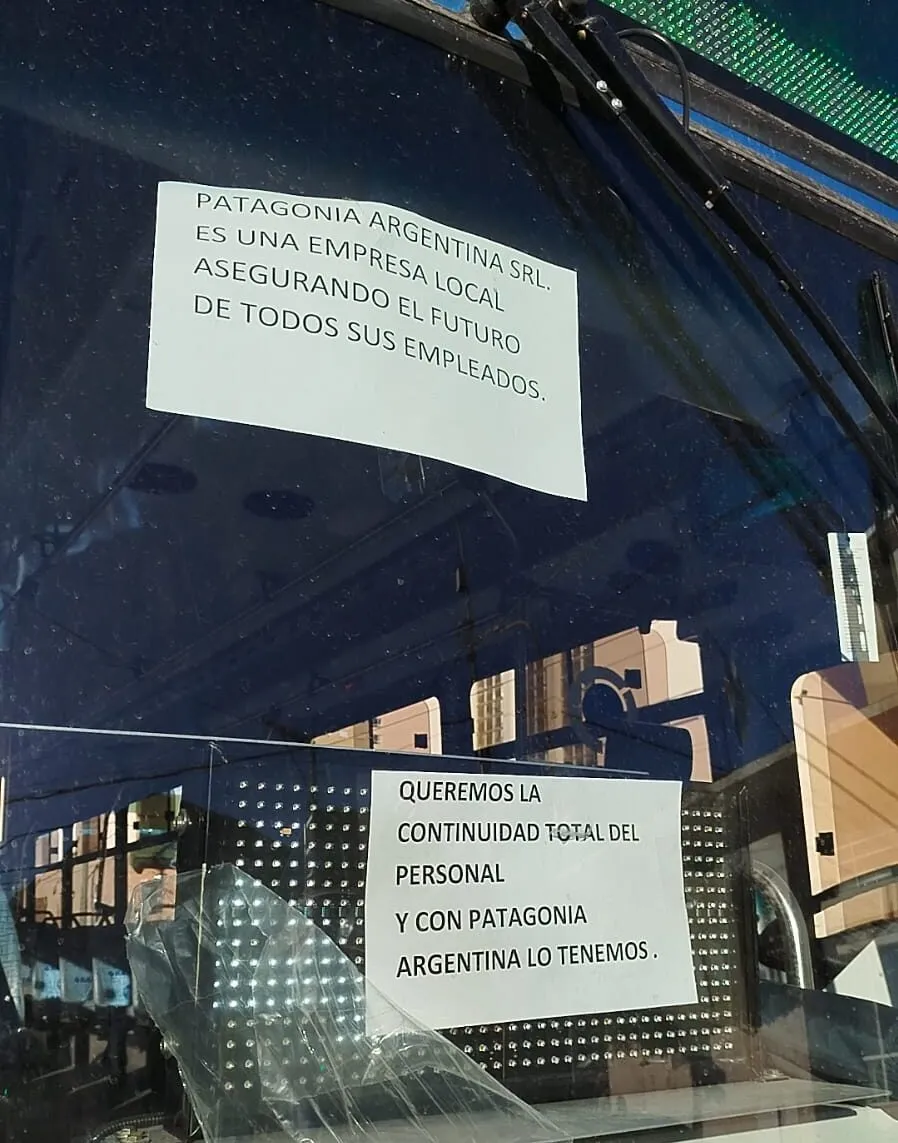 PATAGONIA ARGENTINA SRL.
ES UNA EMPRESA LOCAL
ASEGURANDO EL FUTURO
DE TODOS SUS EMPLEADOS.
QUEREMOS LA
CONTINUIDAD TOTAL DEL
PERSONAL
Y CON PATAGONIA
ARGENTINA LO TENEMOS .